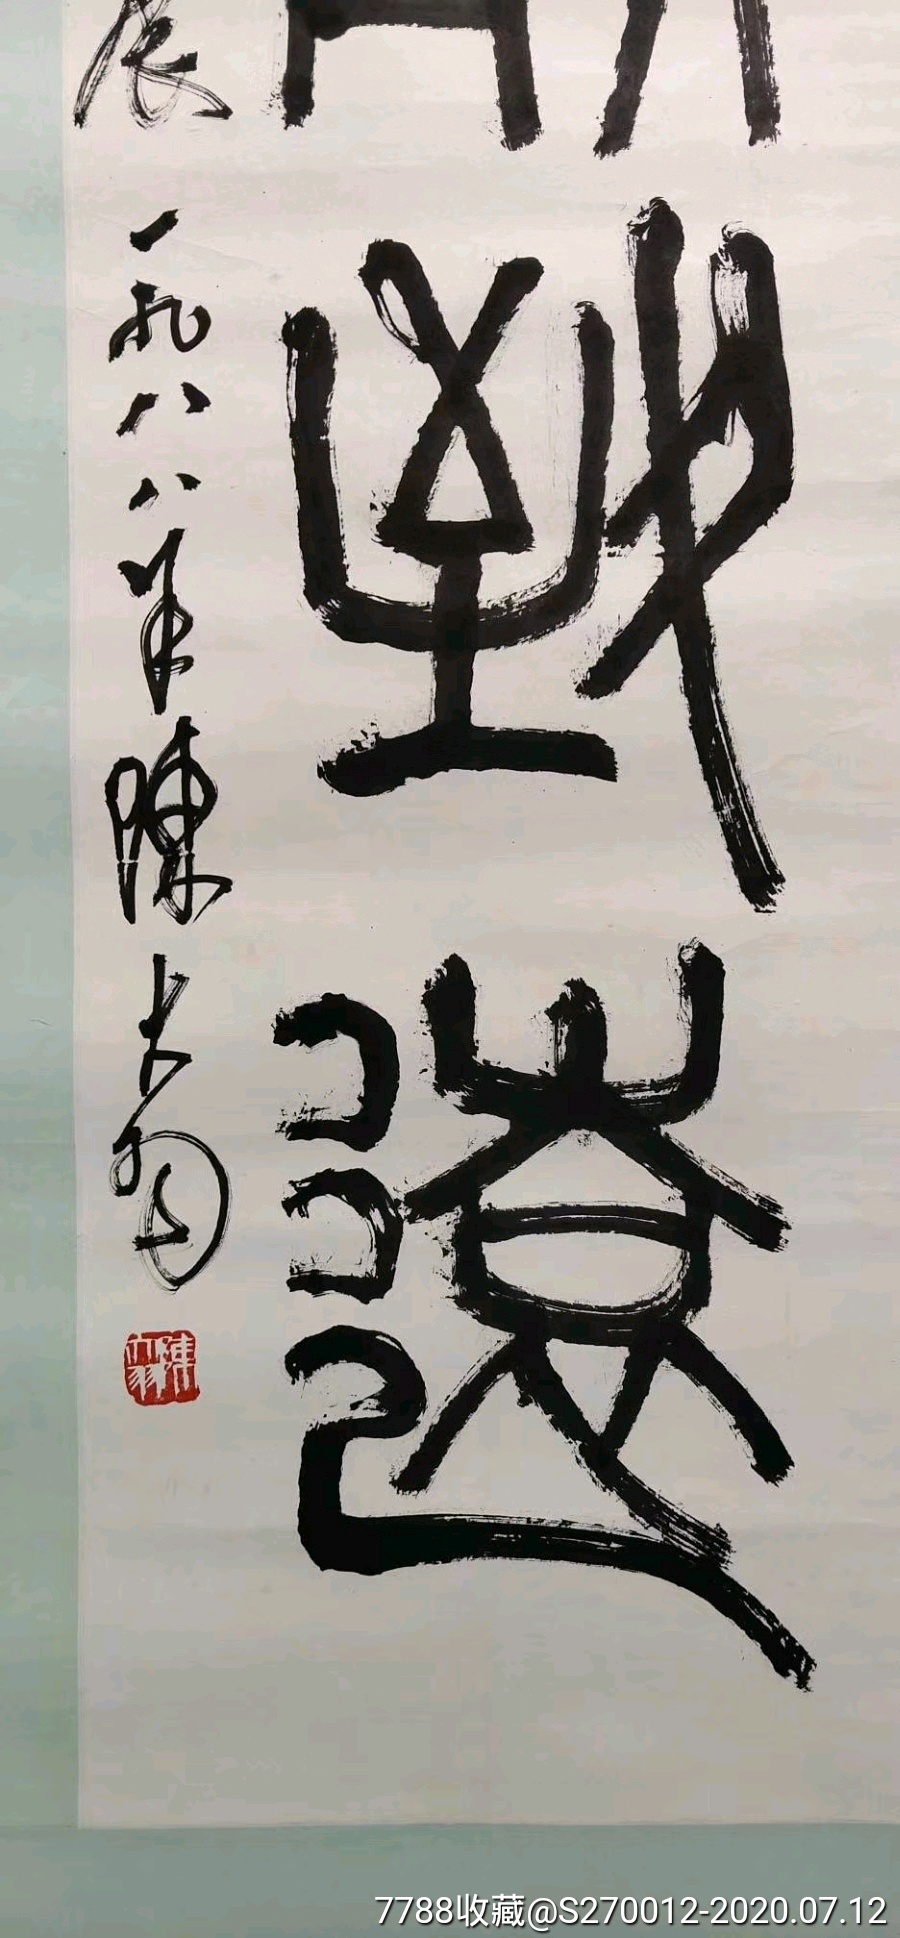 致遠
辰 一九八八年陳大羽
陳大羽
7788收藏@S270012-2020.07.12